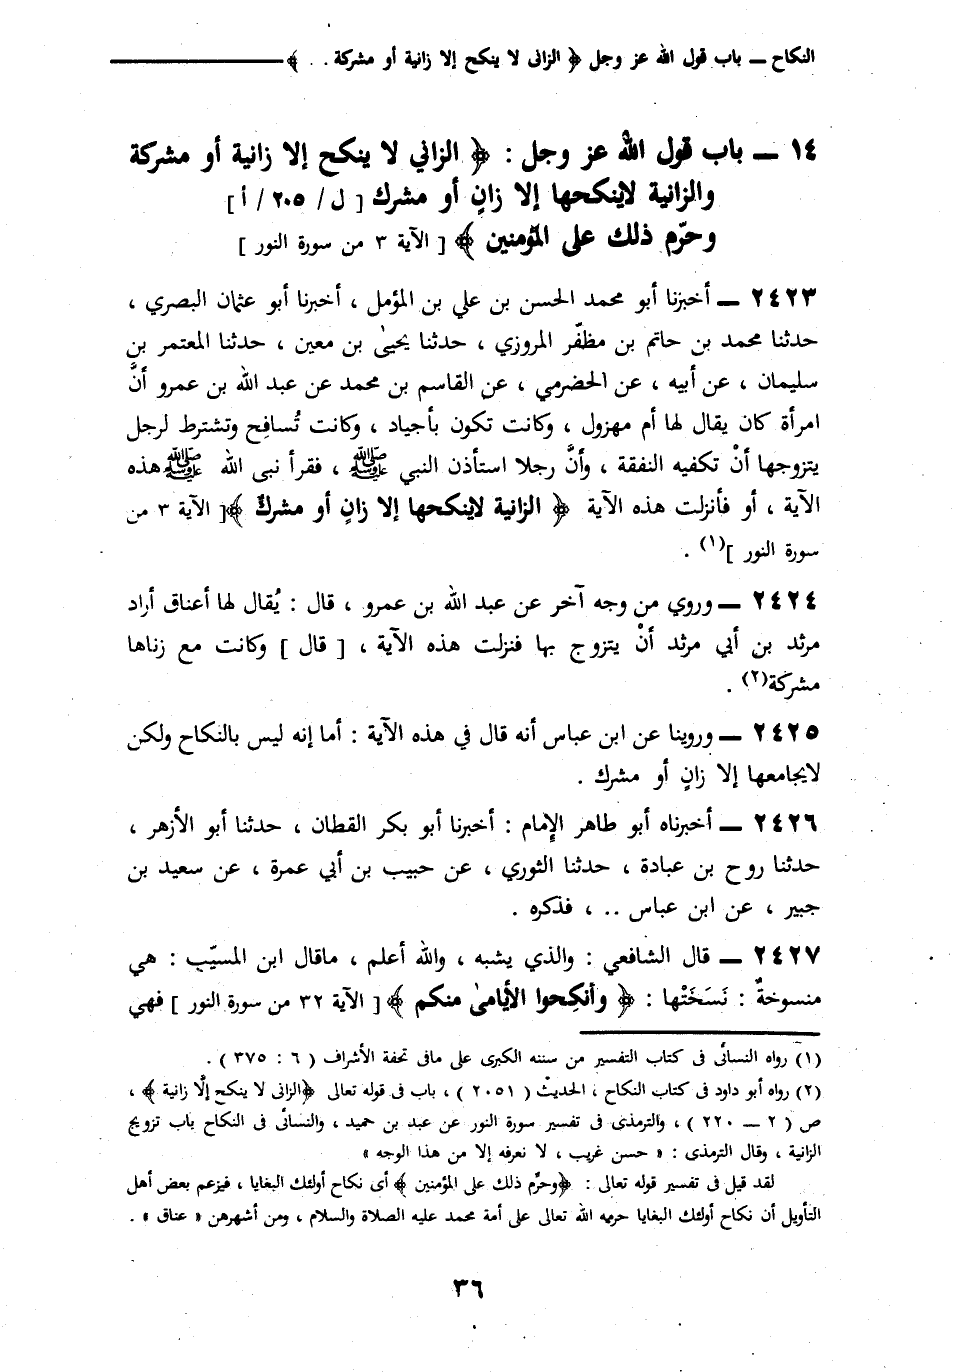 النكاح ــ باب قول الله عز وجل ﴿ الزانى لا ينكح إلا زانية أو مشركة . . ﴾
١٤ ــ باب قول الله عز وجل : ﴿ الزاني لا ينكح إلا زانية أو مشركة
والزانية لاينكحها إلا زانٍ أو مشرك [ ل / ٢٠٥ / أ ]
وحرّم ذلك على المؤمنين ﴾ [ الآية ٣ من سورة النور ]
٢٤٢٣ ــ أخبرنا أبو محمد الحسن بن علي بن المؤمل ، أخبرنا أبو عثمان البصري ،
حدثنا محمد بن حاتم بن مظفّر المروزي ، حدثنا يحيىٰ بن معين ، حدثنا المعتمر بن
سليمان ، عن أبيه ، عن الحضرمي ، عن القاسم بن محمد عن عبد الله بن عمرو أنَّ
امرأة كان يقال لها أم مهزول ، وكانت تكون بأجياد ، وكانت تُسافِح وتشترط لرجل
يتزوجها أنْ تكفيه النفقة ، وأنَّ رجلا استأذن النبي ﷺ ، فقرأ نبى الله ﷺ هذه
الآية ، أو فأنزلت هذه الآية ﴿ الزانية لاينكحها إلا زانٍ أو مشركٌ ﴾[ الآية ٣ من
سورة النور ](١) .
٢٤٢٤ ــ وروي من وجه آخر عن عبد الله بن عمرو ، قال : يُقال لها أعناق أراد
مرثد بن أبي مرثد أنْ يتزوج بها فنزلت هذه الآية ، [ قال ] وكانت مع زناها
مشركة(٢) .
٢٤٢٥ ــ وروينا عن ابن عباس أنه قال في هذه الآية : أما إنه ليس بالنكاح ولكن
لايجامعها إلا زانٍ أو مشرك .
٢٤٢٦ ــ أخبرناه أبو طاهر الإمام : أخبرنا أبو بكر القطان ، حدثنا أبو الأزهر ،
حدثنا روح بن عبادة ، حدثنا الثوري ، عن حبيب بن أبي عمرة ، عن سعيد بن
جبير ، عن ابن عباس .. ، فذكره .
٢٤٢٧ ــ قال الشافعي : والذي يشبه ، والله أعلم ، ماقال ابن المسيّب : هي
منسوخةٌ : نَسَخَتْها : ﴿ وأنكِحوا الأيامىٰ منكم ﴾ [ الآية ٣٢ من سورة النور ] فهي
(١) رواه النسائى فى كتاب التفسير من سننه الكبرى على مافى تحفة الأشراف ( ٦ : ٣٧٥ ) .
(٢) رواه أبو داود فى كتاب النكاح ، الحديث ( ٢٠٥١ ) ، باب فى قوله تعالى ﴿الزانى لا ينكح إلَّا زانية ﴾ ،
ص ( ٢ ــ ٢٢٠ ) ، والترمذى فى تفسير سورة النور عن عبد بن حميد ، والنسائى فى النكاح باب تزويج
الزانية ، وقال الترمذى : « حسن غريب ، لا نعرفه إلا من هذا الوجه »
لقد قيل فى تفسير قوله تعالى : ﴿وحرِّم ذلك على المؤمنين ﴾ أى نكاح أولئك البغايا ، فيزعم بعض أهل
التأويل أن نكاح أولئك البغايا حرمه الله تعالى على أمة محمد عليه الصلاة والسلام ، ومن أشهرهن « عناق » .
٣٦